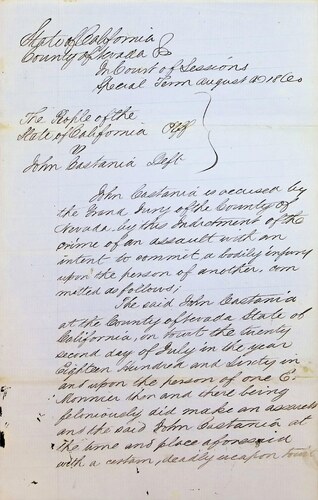 State of California
County of Nevada
In Court of Sessions
Special Term August AD 1860
The People of the
State of California Plff
v
John Castania Deft
John Castania is accused by
the Grand Jury of the County of
Nevada, by this Indictment of the
crime of an assault with an
intent to commit a bodily injury
upon the person of another, com
mitted as follows;
The said John Castania
at the County of Nevada State of
California, on the twenty
second day of July in the year
Eighteen Hundred and Sixty in
and upon the person of one C.
Monnier then and there being
feloniously did make an assault
and the said John Castania at
the time and place aforesaid
with a certain deadly weapon